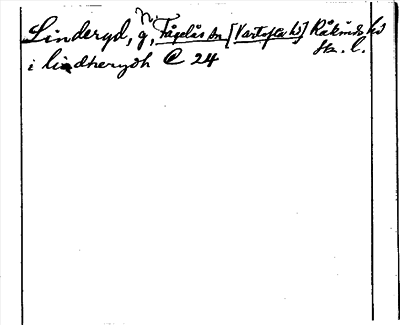 Lindergd, g, n Fågelås sn [Vartofta hd] Råkinds hd
Sk. l.
i lindherydh C 24